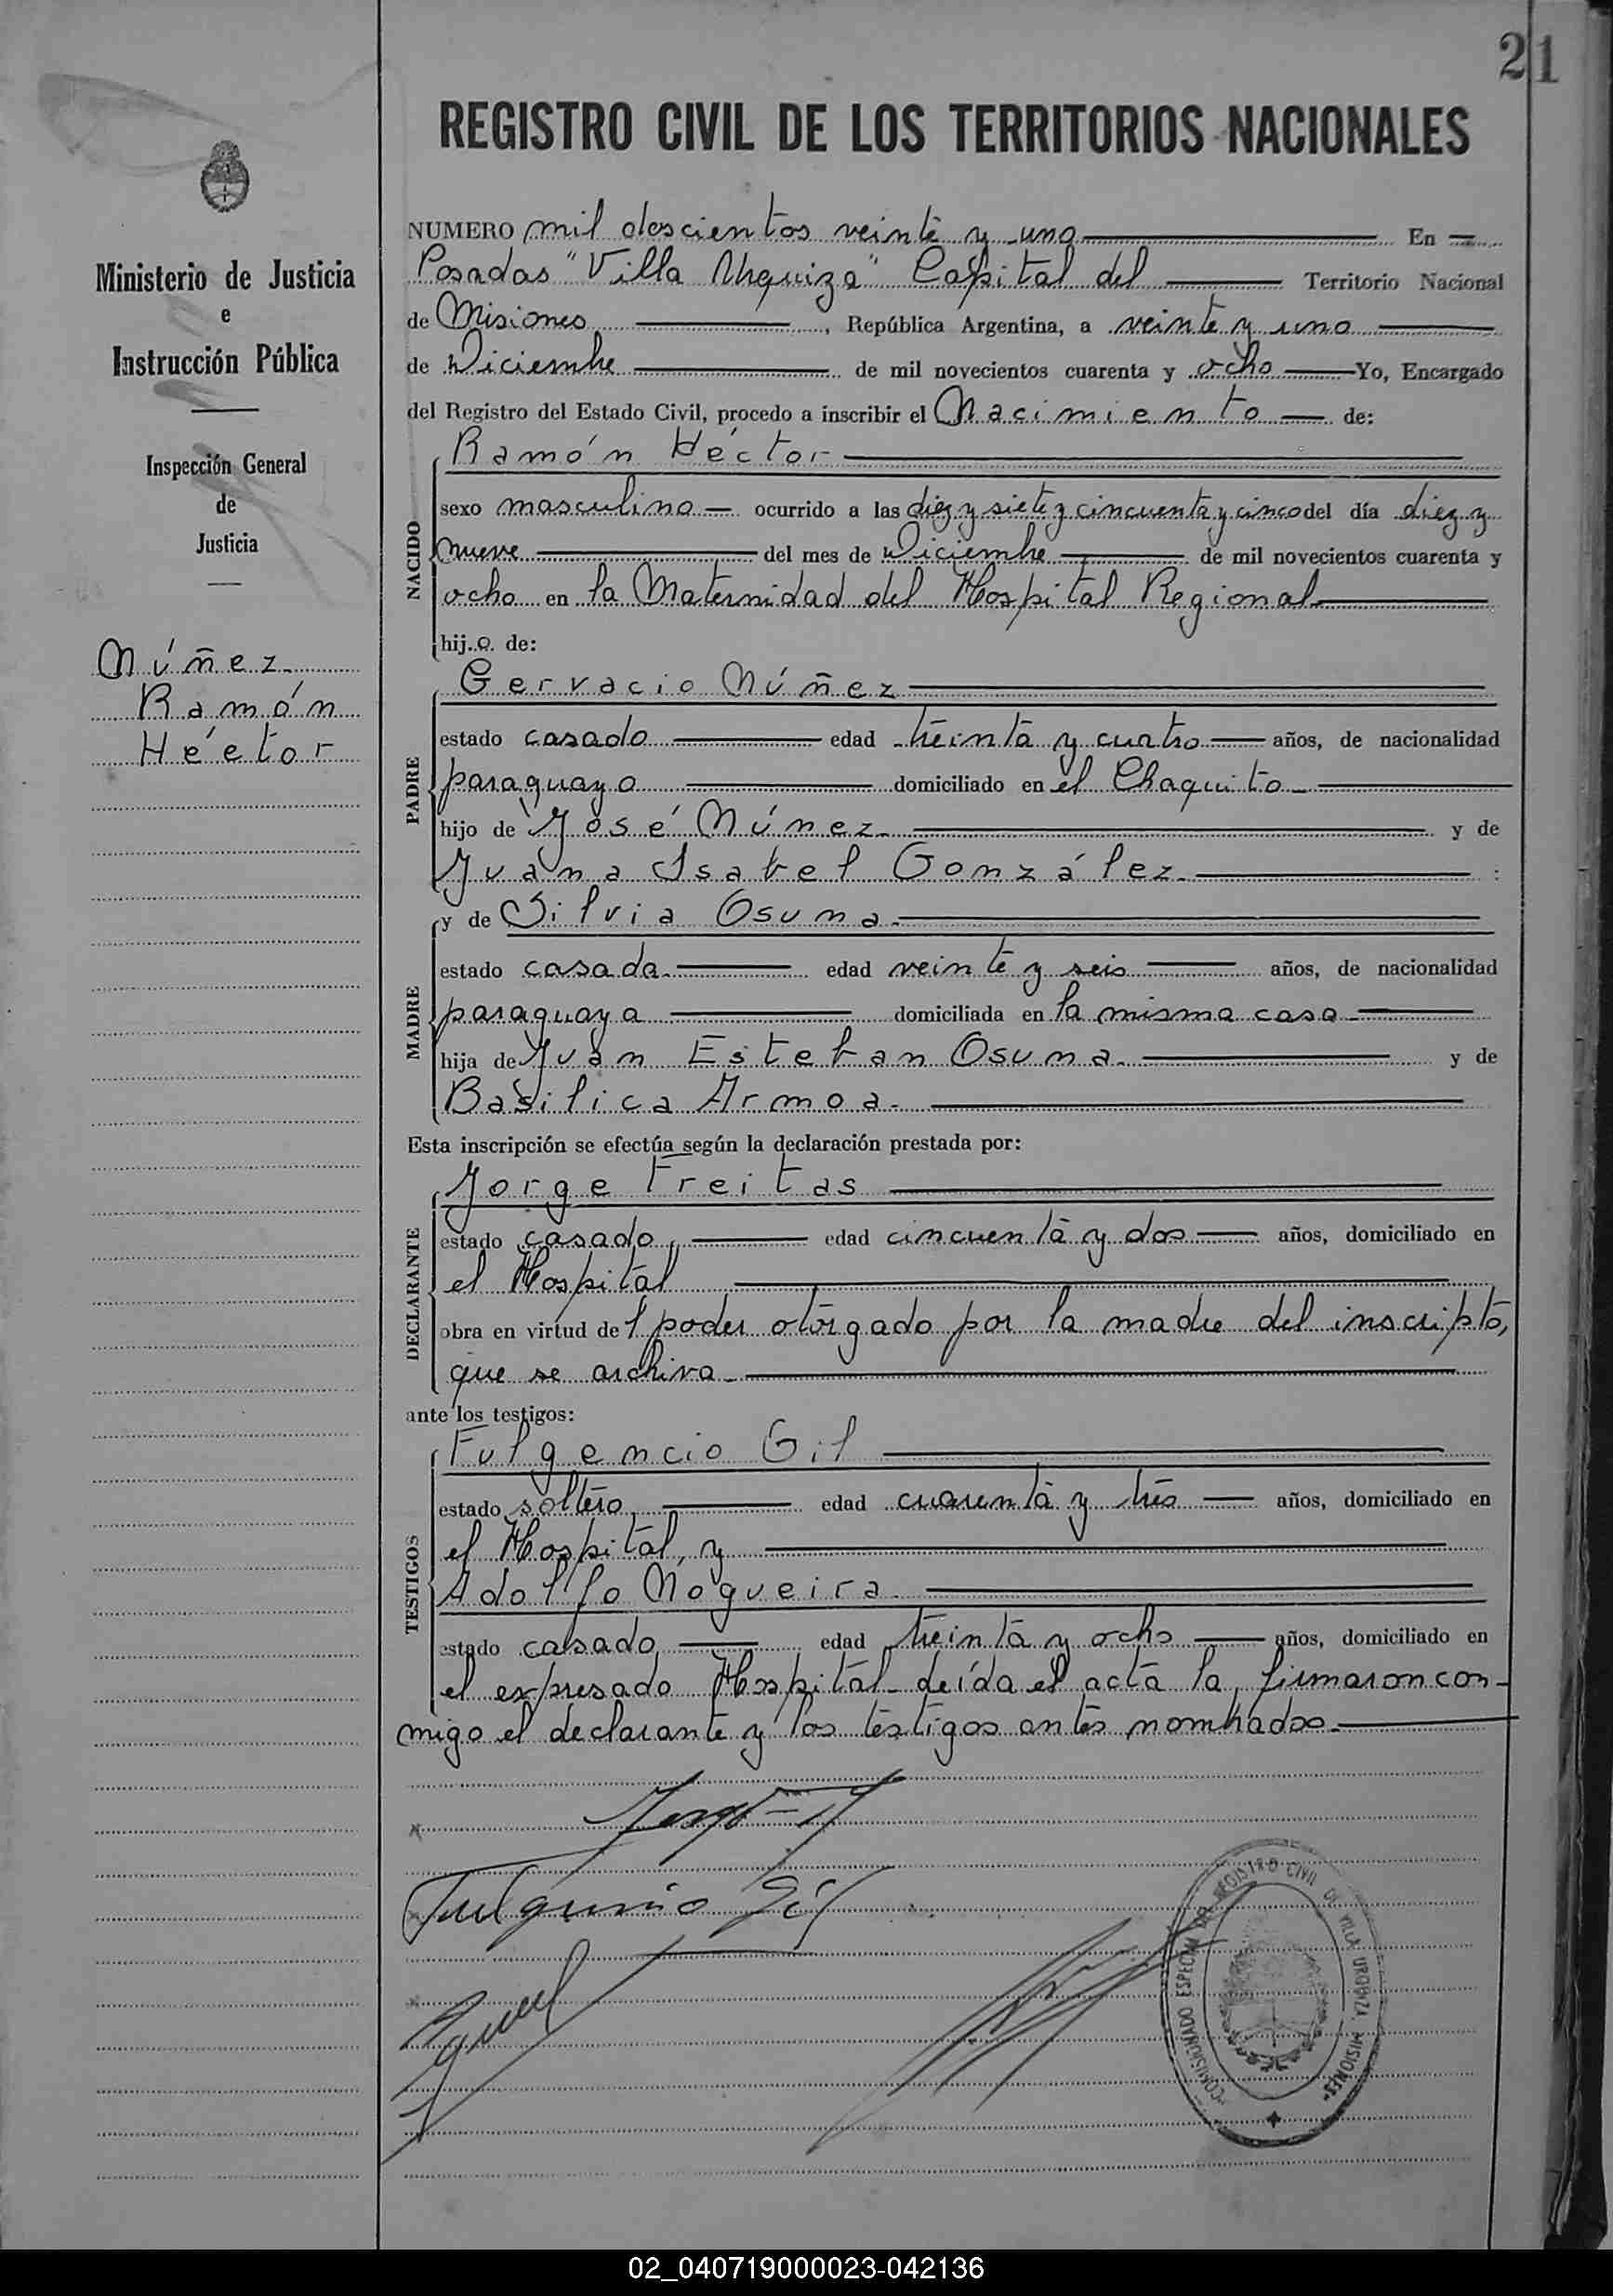 21
REGISTRO CIVIL DE LOS TERRITORIOS NACIONALES
Ministerio de Justicia
e
Instrucción Pública
Inspección General
de
Justicia
Núñez
Ramón
Héctor
NUMERO mil doscientos veinte y uno En
Posadas "Villa Urquiza" Capital del Territorio Nacional
de Misiones, República Argentina, a veinte y uno
de Diciembre de mil novecientos cuarenta y ocho Yo, Encargado
del Registro del Estado Civil, procedo a inscribir el Nacimiento de:
NACIDO
Ramón Héctor
sexo masculino ocurrido a las diez y siete y cincuenta y cinco del día diez y
nueve del mes de Diciembre de mil novecientos cuarenta y
ocho en la Maternidad del Hospital Regional
hijo de:
PADRE
Gervacio Núñez
estado casado edad treinta y cuatro años, de nacionalidad
paraguayo domiciliado en el Chaquito
hijo de José Núnez y de
Juana Isabel González :
MADRE
y de Silvia Osuna
estado casada edad veinte y seis años, de nacionalidad
paraguaya domiciliada en la misma casa
hija de Juan Esteban Osuna y de
Basilica Armoa
Esta inscripción se efectúa según la declaración prestada por:
DECLARANTE
Jorge Freitas
estado casado edad cincuenta y dos años, domiciliado en
el Hospital
obra en virtud del poder otorgado por la madre del inscripto,
que se archiva
ante los testigos:
TESTIGOS
Fulgencio Gil
estado soltero edad cuarenta y tres años, domiciliado en
el Hospital, y
Adolfo Nogueira
estado casado edad treinta y ocho años, domiciliado en
el expresado Hospital- Leída el acta la firmaron con-
migo el declarante y los testigos antes nombrados
Fulgencio Gil
COMISIONADO ESPECIAL DEL REGISTRO CIVIL DE VILLA URQUIZA, MISIONES
02_040719000023-042136